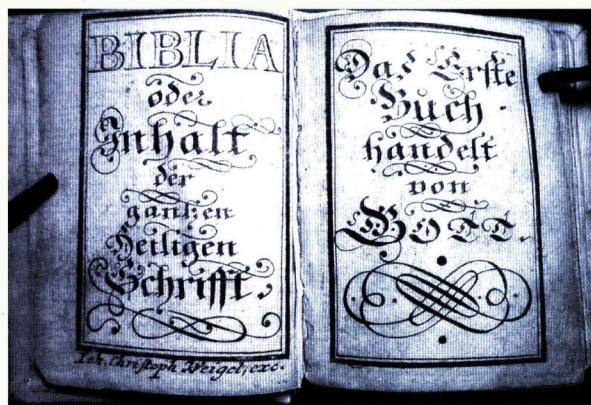 BIBLIA
oder
Inhalt
der
gantzen
Heiligen
Schrifft.
Joh. Christoph Weigel, exc.
Das Erste
Buch
handelt
von
GOTT.